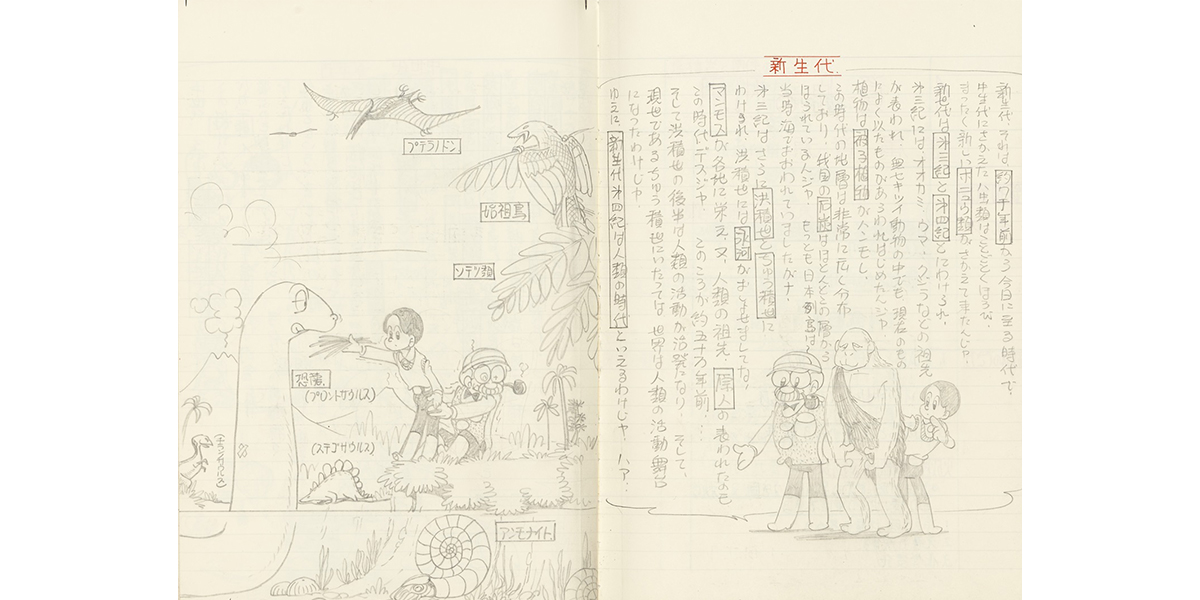 新生代
新生代 それは、約 千年前から今日に至る時代で、
中生代にさかえたハ虫類はことごとくほろび、
まったく新しいホニュウ類がさかえて来たんじゃ。
新生代は㐧三紀と㐧四紀とにわけられ、
㐧三紀には、オオカミ、ウマ、クジラなどの祖先
が表われ、無セキツイ動物の中でも現在のもの
によく似たものがあらわれはじめたんジャ。
植物は被子植物がハンモし、
この時代の地層は非常に広く分布
しており、我国の石炭はほとんどこの層から
ほられているんジャ。もっとも日本列島は
当時海でおおわれていましたがナ。
㐧三紀はさらに洪積世とちゅう積世に
わけられ、洪積世には氷河がおしよせましてな、
マンモスが各地に栄え、又、人類の祖先、原人の表われたのも
この時代デスジャ。 このころが約五十万年前…
そして洪積世の後半は人類の活動が活発になり、そして、
現世であるちゅう積世にいたっては世界は人類の活動舞台
になったわけじゃ。
ゆえに、新生代㐧四紀は人類の時代といえるわけじゃ。ハア。
プテラノドン
始祖鳥
ソテツ類
恐竜
(ブロントサウルス)
(ステゴサウルス)
アンモナイト